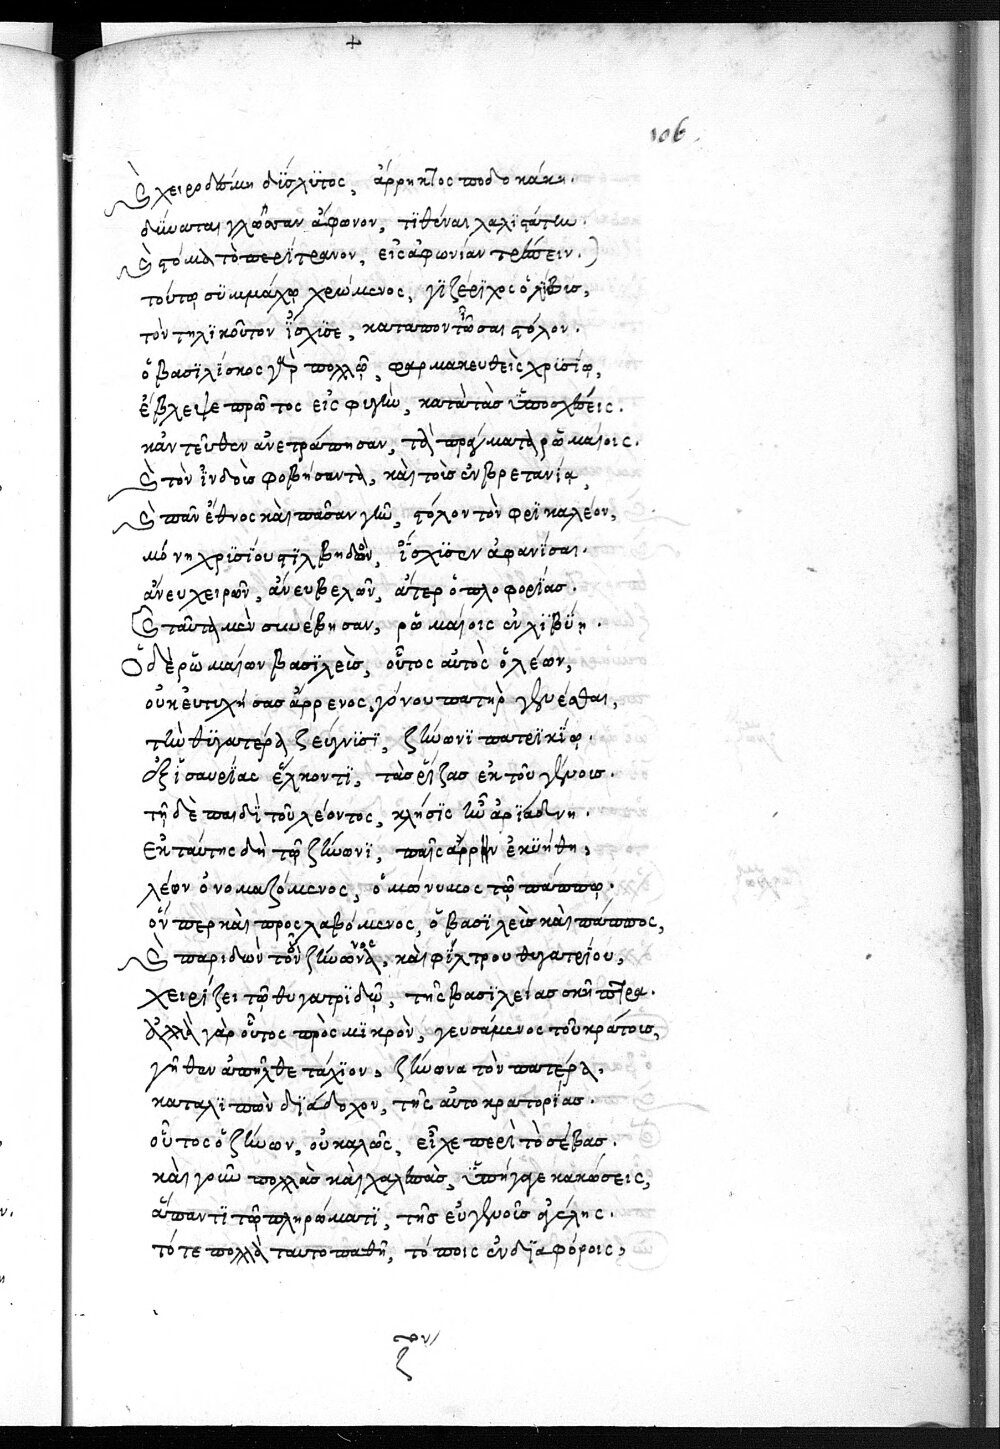 106
Ἡ χειροδέσμη δύσλυτος, ἄρρηκτος ποδοκάκη.
δύναται γλῶσσαν ἄφωνον, τιθέναι λαλιστάτην.
Ἢ στόμα τὸ περίτρανον, εἰς ἀφωνίαν τρέπειν.
τούτῳ συμμάχῳ χρώμενος, γιζέριχος ὁ λίβυς,
τὸν τηλικοῦτον ἴσχυσε, καταποντῶσαι στόλον.
ὁ βασιλίσκος γὰρ πολλῷ, φαρμακευθεὶς χρυσίῳ,
ἔβλεψε πρῶτος εἰς φυγὴν, κατὰ τὰς ὑποσχέσεις.
κἀντεῦθεν ἀνετράπησαν, τὰ πράγματα ῥωμαίοις.
καὶ τὸν ἰνδοὺς φοβήσαντα, καὶ τοὺς ἐν βρετανίᾳ,
καὶ πᾶν ἔθνος καὶ πᾶσαν γῆν, στόλον τὸν φρικαλέον,
μόνη χρυσίου στιλβηδὼν, ἴσχυσεν ἀφανίσαι.
ἄνευ χειρῶν, ἄνευ βελῶν, ἄτερ ὁπλοφορίας.
καὶ ταῦτα μὲν συνέβησαν, ῥωμαίοις ἐν λιβύῃ.
Ὁ δὲ ῥωμαίων βασιλεὺς, οὗτος αὐτὸς ὁ λέων,
οὐκ εὐτυχήσας ἄρρενος, γόνου πατὴρ γενέσθαι,
τὴν θυγατέρα ζεύγνυσι, ζήνωνι πατρικίῳ.
ἐξ ἰσαυρίας ἕλκοντι, τὰς ῥίζας ἐκ τοῦ γένους.
τῇ δὲ παιδὶ τοῦ λέοντος, κλῆσις ἦν ἀριάδνη.
ἐκ ταύτης δὴ τῷ ζήνωνι, παῖς ἄρρην ἐκυήθη,
λέων ὀνομαζόμενος, ὁμώνυμος τῷ πάππῳ.
ὅνπερ καὶ προσλαβόμενος, ὁ βασιλεὺς καὶ πάππος,
καὶ παριδὼν τοῦ ζήνωνος, καὶ φίλτρου θυγατρίου,
χειρίζει τῷ θυγατριδῷ, τῆς βασιλείας σκῆπτρα.
ἀλλὰ γὰρ οὗτος πρὸς μικρὸν, γευσάμενος τοῦ κράτους,
γῆθεν ἀπῆλθε τάχιον, ζήνωνα τὸν πατέρα.
καταλιπὼν διάδοχον, τῆς αὐτοκρατορίας.
οὗτος ὁ ζήνων, οὐ καλῶς, εἶχε περὶ τὸ σέβας.
καὶ γοῦν πολλὰς καὶ χαλεπὰς, ὑπήγαγε κακώσεις,
ἅπαντι τῷ πληρώματι, τῆς εὐγενοῦς ἀγέλης.
τότε πολλὰ ταυτοπαθῆ, τόποις ἐν διαφόροις,